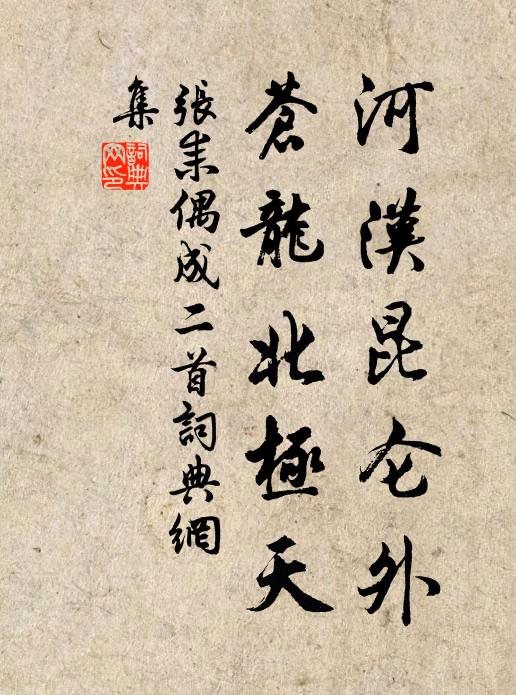 河漢昆仑外
蒼龍北極天
張耒偶成二首詞典網
集
詞典
网印